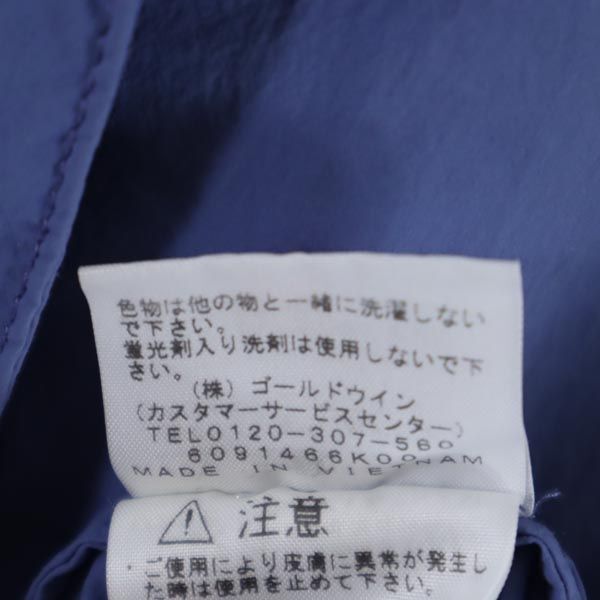 色物は他の物と一緒に洗濯しない
で下さい。
蛍光剤入り洗剤は使用しないで下
さい。
(株) ゴールドウイン
(カスタマーサービスセンター)
TEL0120-307-560
6091466K00
MADE IN VIETNAM
注意
・ご使用により皮膚に異常が発生し
た時は使用を止めて下さい。